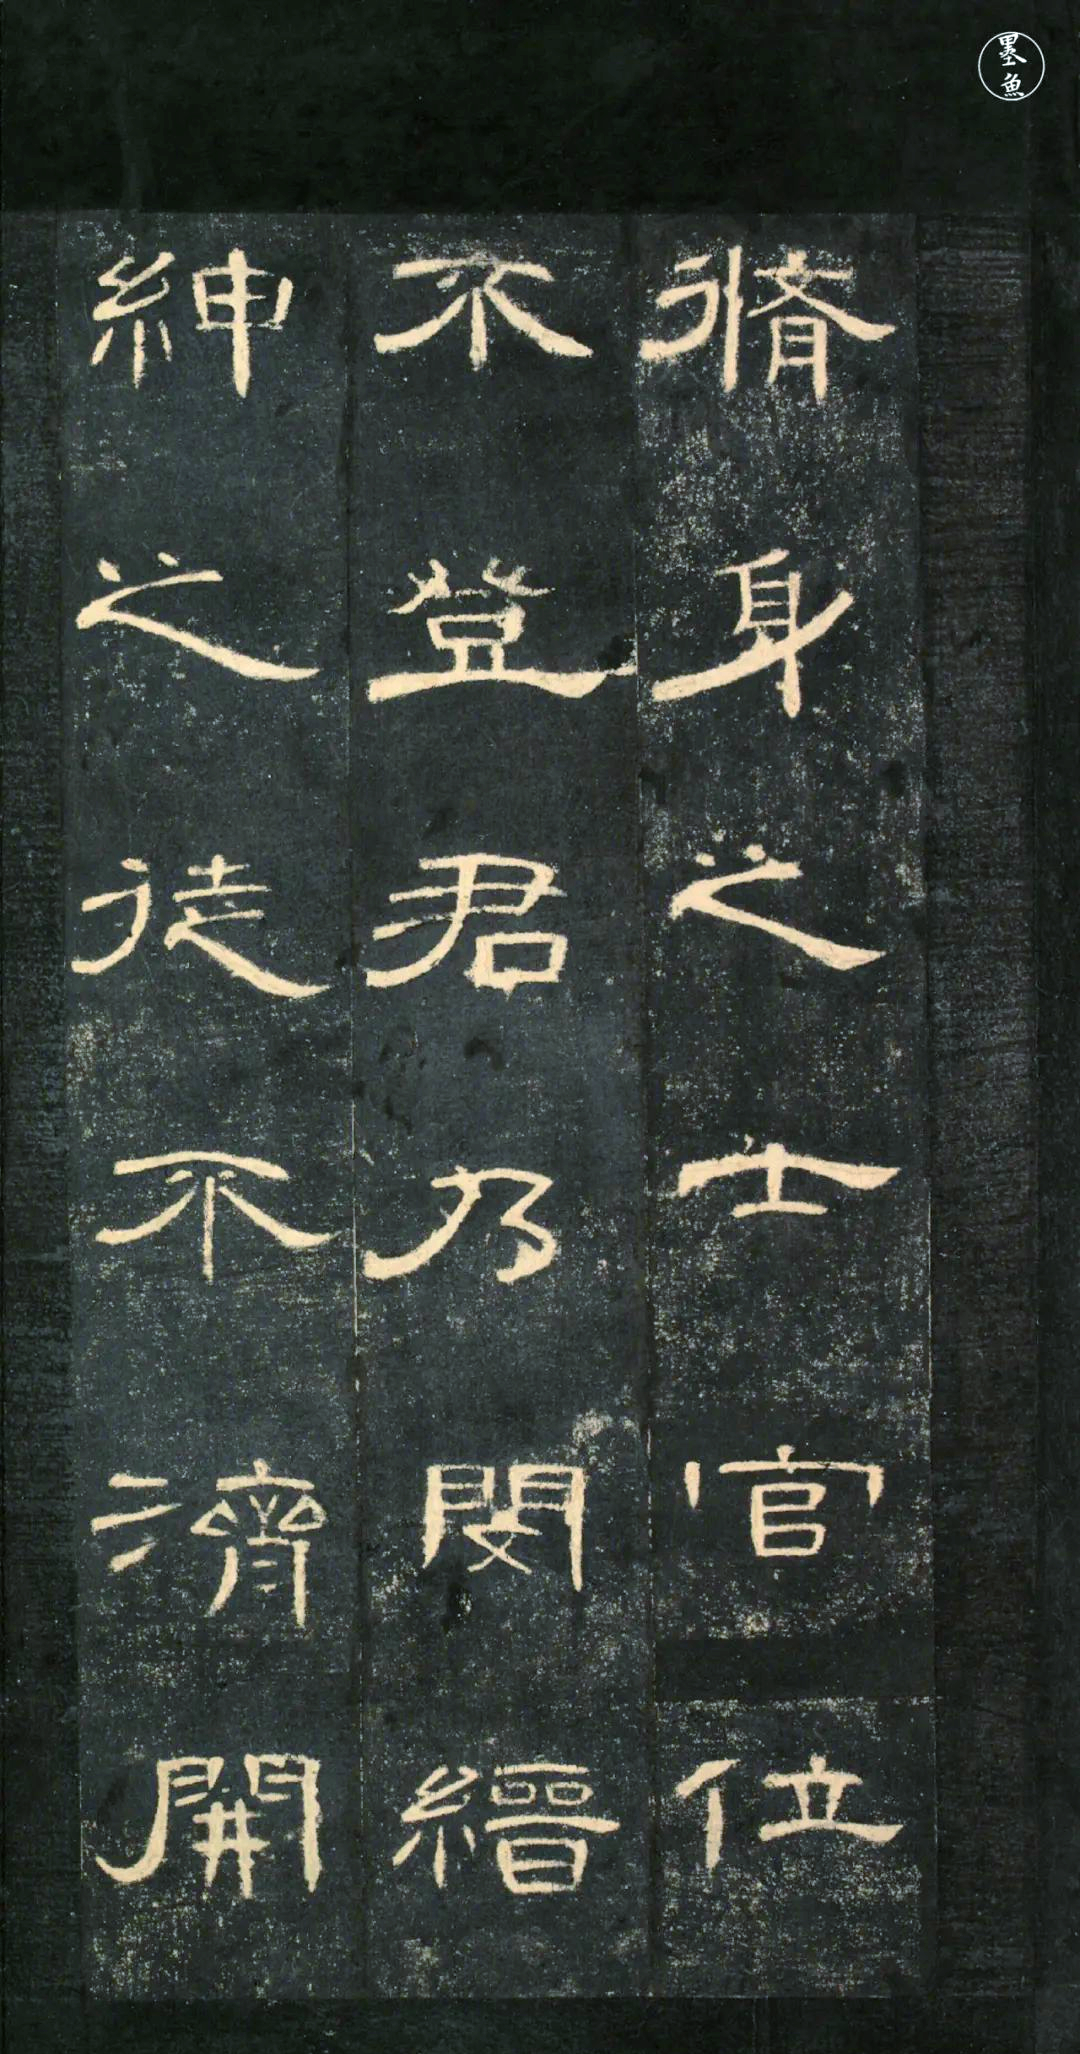 脩身之士官位
不登君乃閔縉
紳之徒不濟開
墨魚